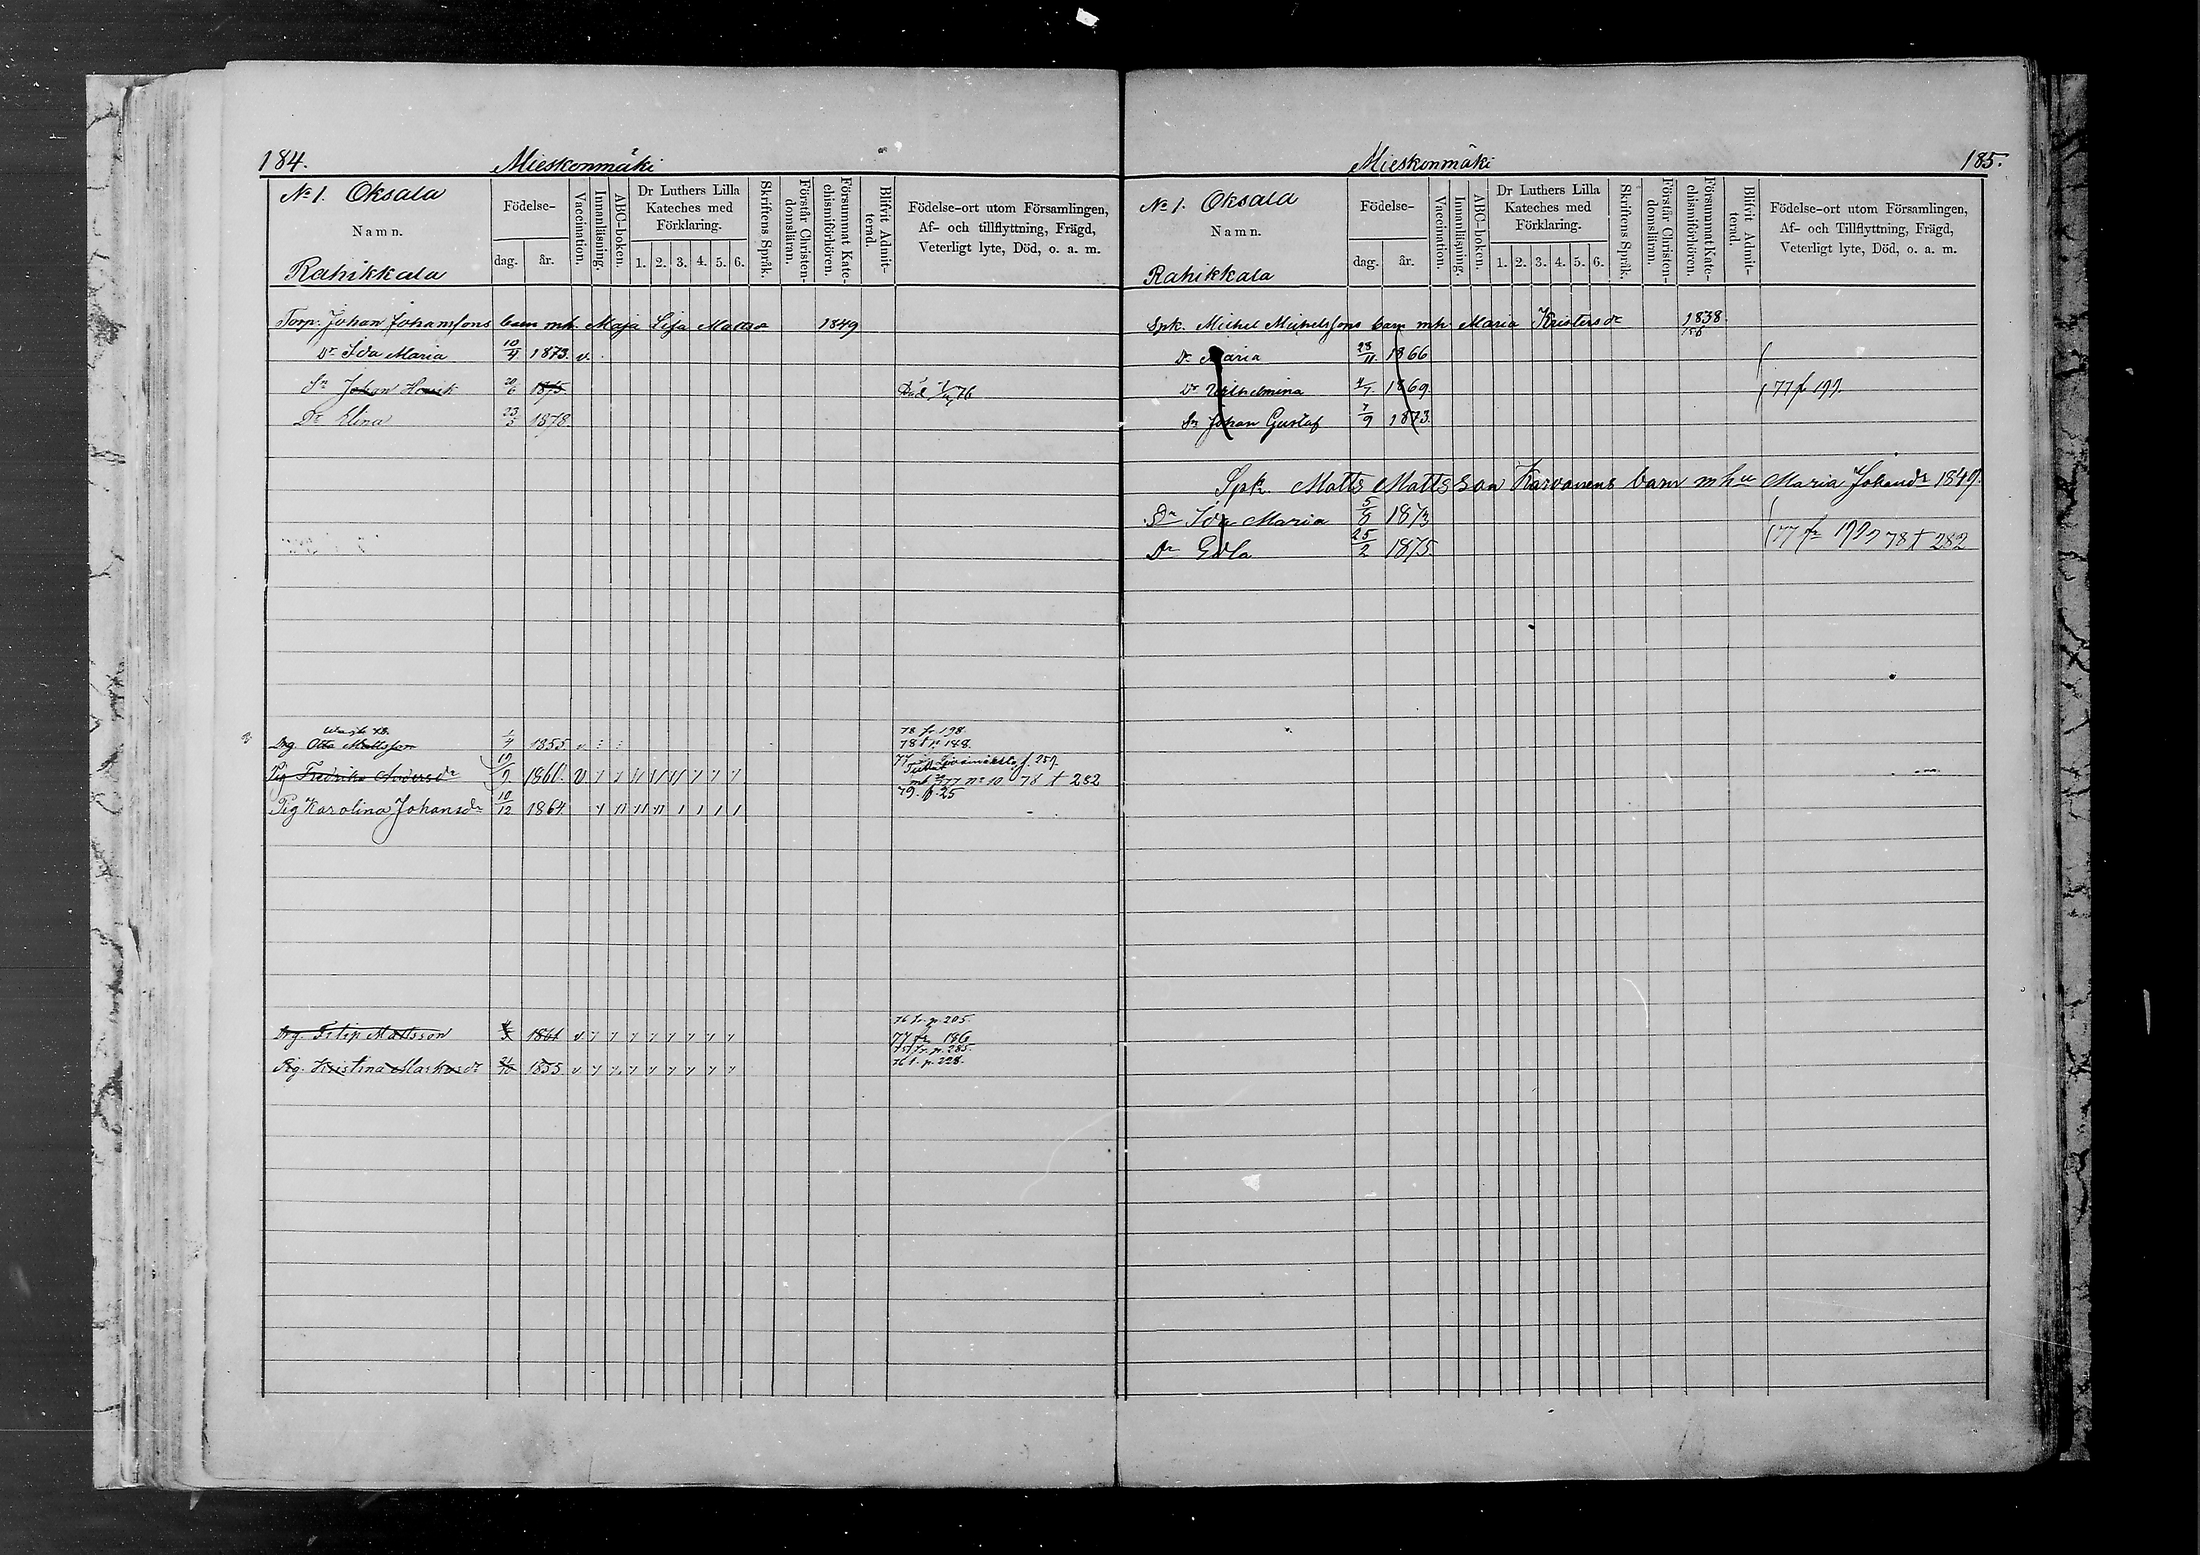 184.
Mieskonmäki
No 1. Oksala
Namn.
Rahikkala
Födelse-
dag.
år.
Vaccination.
Innanläsning.
ABC-boken.
Dr Luthers Lilla
Kateches med
Förklaring.
1. 2. 3. 4. 5. 6.
Skriftens Språk.
Förstår Christen-
domslärnn.
Försummat Kate-
chismiförhören.
Blifvit Admit-
terad.
Födelse-ort utom Församlingen,
Af- och tillflyttning, Frägd,
Veterligt lyte, Död, o. a. m.
Torp. Johan Johanssons barn mh. Maja Lisa Mattsd 1849
Dr Ida Maria 10/4 1873. v.
Sn Johan Henrik 1875. Död 76
Dr Elina 23/3 1878
Drg. Otto Mattsson 1/4 1855 v
78 fr. 198.
78 t. p. 148.
Pig Fredrika Andersdr 19/9 1861. v
f. 259.
77 no 10 78 t 282
Pig Karolina Johansdr 10/12 1864.
79. fr. 25
Drg. Filip Mattsson 1861 v
76 fr. p. 205.
77 fr 186
Pig. Kristina Markusdr 1855. v
75 fr. p. 285.
76 t. p. 228.
Mieskonmäki
185.
No 1. Oksala
Namn.
Rahikkala
Födelse-
dag.
år.
Vaccination.
Innanläsning.
ABC-boken.
Dr Luthers Lilla
Kateches med
Förklaring.
1. 2. 3. 4. 5. 6.
Skriftens Språk.
Förstår Christen-
domslärnn.
Försummat Kate-
chismiförhören.
Blifvit Admit-
terad.
Födelse-ort utom Församlingen,
Af- och Tillflyttning, Frägd,
Veterligt lyte, Död, o. a. m.
Spk. Michel Michelssons barn mh Maria Kristersdr 1838.
Dr Maria 28/11 1866
Dr Vilhelmina 1869. 77 f 177.
Sn Johan Gustaf 7/9 1873.
Spk. Matts Mattsson Karvonens barn mhu Maria Johansdr 1849.
Dr Ida Maria 5/8 1873
Dr Edla 25/2 1875. 77 fr 177 78 t 282